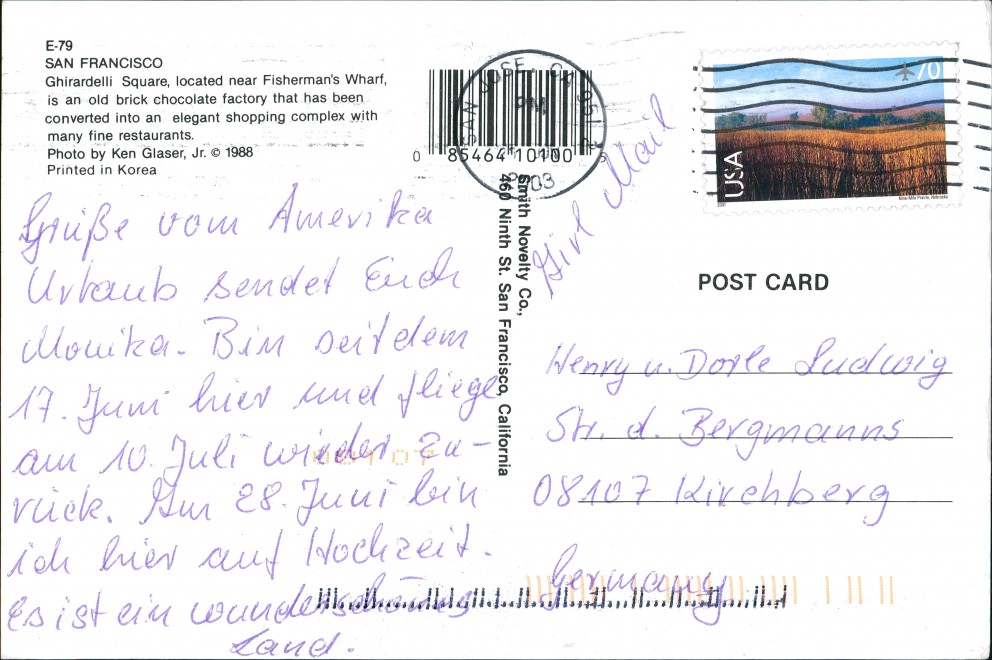 E-79
SAN FRANCISCO
Ghirardelli Square, located near Fisherman's Wharf,
is an old brick chocolate factory that has been
converted into an elegant shopping complex with
many fine restaurants.
Photo by Ken Glaser, Jr. © 1988
Printed in Korea
Grüße vom Amerika
Urlaub sendet Euch
Monika. Bin seit dem
17. Juni hier und fliege
am 10. Juli wieder zu-
rück. Am 28. Juni bin
ich hier auf Hochzeit.
Es ist ein wunderschönes
Land.
SAN JOSE, CA 951
PM
2003
0 85464 10100 5
Smith Novelty Co.,
460 Ninth St. San Francisco, California
Mail
70
USA
POST CARD
Henry u. Dorle Ludwig
Str. d. Bergmanns
08107 Kirchberg
Germany